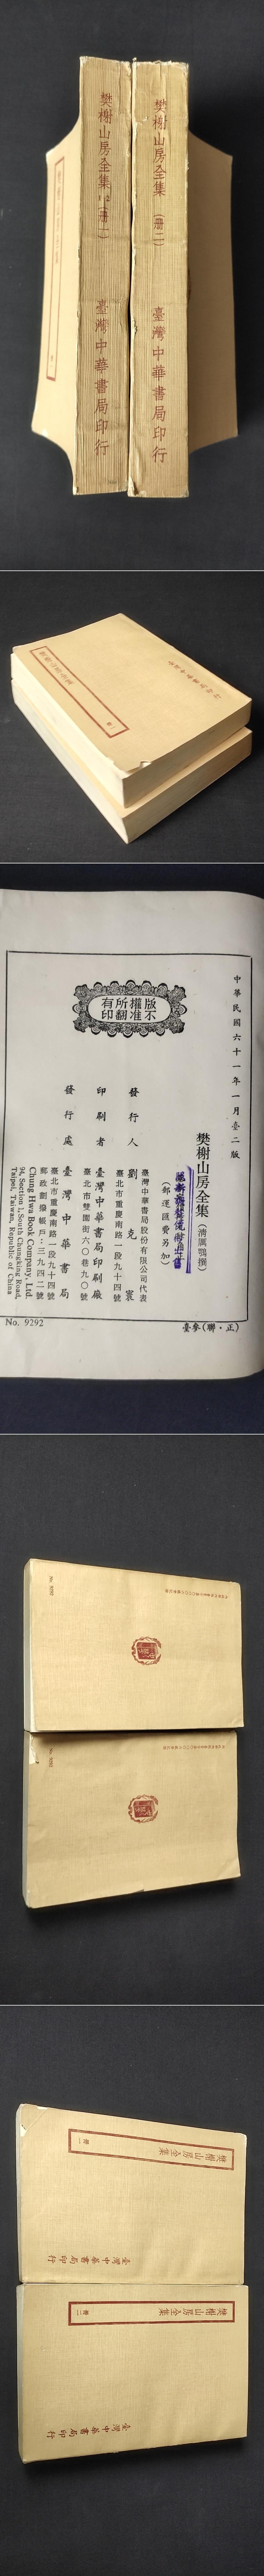 樊榭山房全集 (冊一)
臺灣中華書局印行
樊榭山房全集 (冊二)
臺灣中華書局印行
中華民國六十一年一月臺二版
樊榭山房全集(清厲鶚撰)
(郵運匯費另加)
臺灣中華書局股份有限公司代表
發行人 劉克寰
臺北市重慶南路一段九十四號
印刷者 臺灣中華書局印刷廠
臺北市雙園街六〇巷九〇號
發行處 臺灣中華書局
臺北市重慶南路一段九十四號
郵政劃撥帳戶:三九四二號
Chung Hwa Book Company, Ltd.
94, Section 1, South Chungking Road,
Taipei, Taiwan, Republic of China
版權所有
不准翻印
No. 9292
臺參(聯·正)
No. 9292
No. 9292
樊榭山房全集
冊一
臺灣中華書局印行
樊榭山房全集
冊二
臺灣中華書局印行